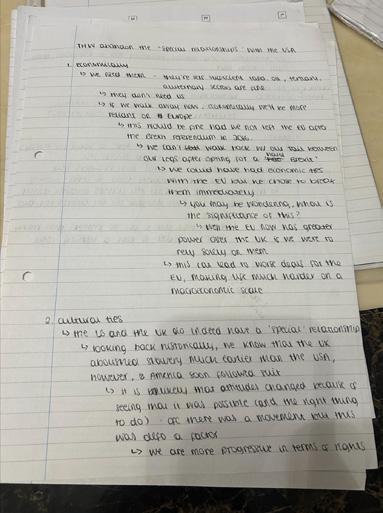 THW abandon the "special relationship" with the USA
1. economically
↳ we need them - they're our
automary sectors are
↳ they don't need us
↳ if we walk away now, economically we'll be more
reliant on Europe
↳ this would be fine had we not left the EU after
the Brexit referendum in 2016
↳ we can't walk back w/ our tail between
our legs after opting for a "hard Brexit"
↳ we could have had economic ties
with the EU but we chose to break
them immediately
↳ you may be wondering, what is
the significance of this?
↳ well the EU now has greater
power over the UK if we were to
rely solely on them
↳ this can lead to worse deals for the
EU, making life much harder on a
macroeconomic scale
2. cultural ties
↳ the US and the UK do indeed have a 'special' relationship
↳ looking back historically, we know that the UK
abolished slavery much earlier than the USA,
however, America soon followed suit
↳ it is likely that attitudes changed because of
seeing that it was possible (and the right thing
to do) - ofc there was a movement but this
was defo a factor
↳ we are more progressive in terms of rights